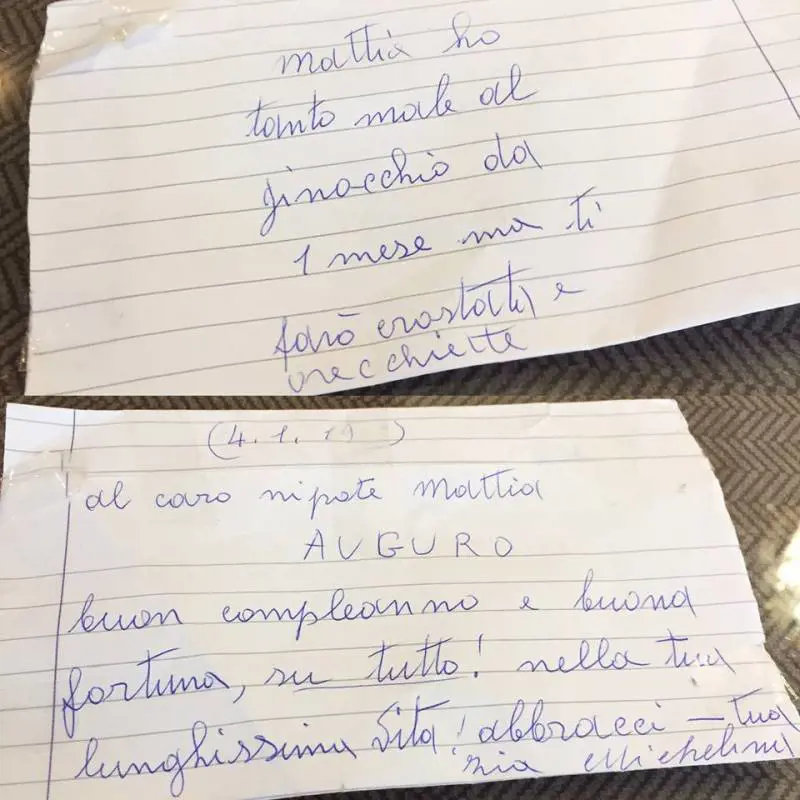 mattia ho
tanto male al
ginocchio da
1 mese ma ti
farò crostata e
orecchiette
(4.1.19)
al caro nipote Mattia
AUGURO
buon compleanno e buona
fortuna, su tutto! nella tua
lunghissima Vita! abbracci – tua
zia Michelina